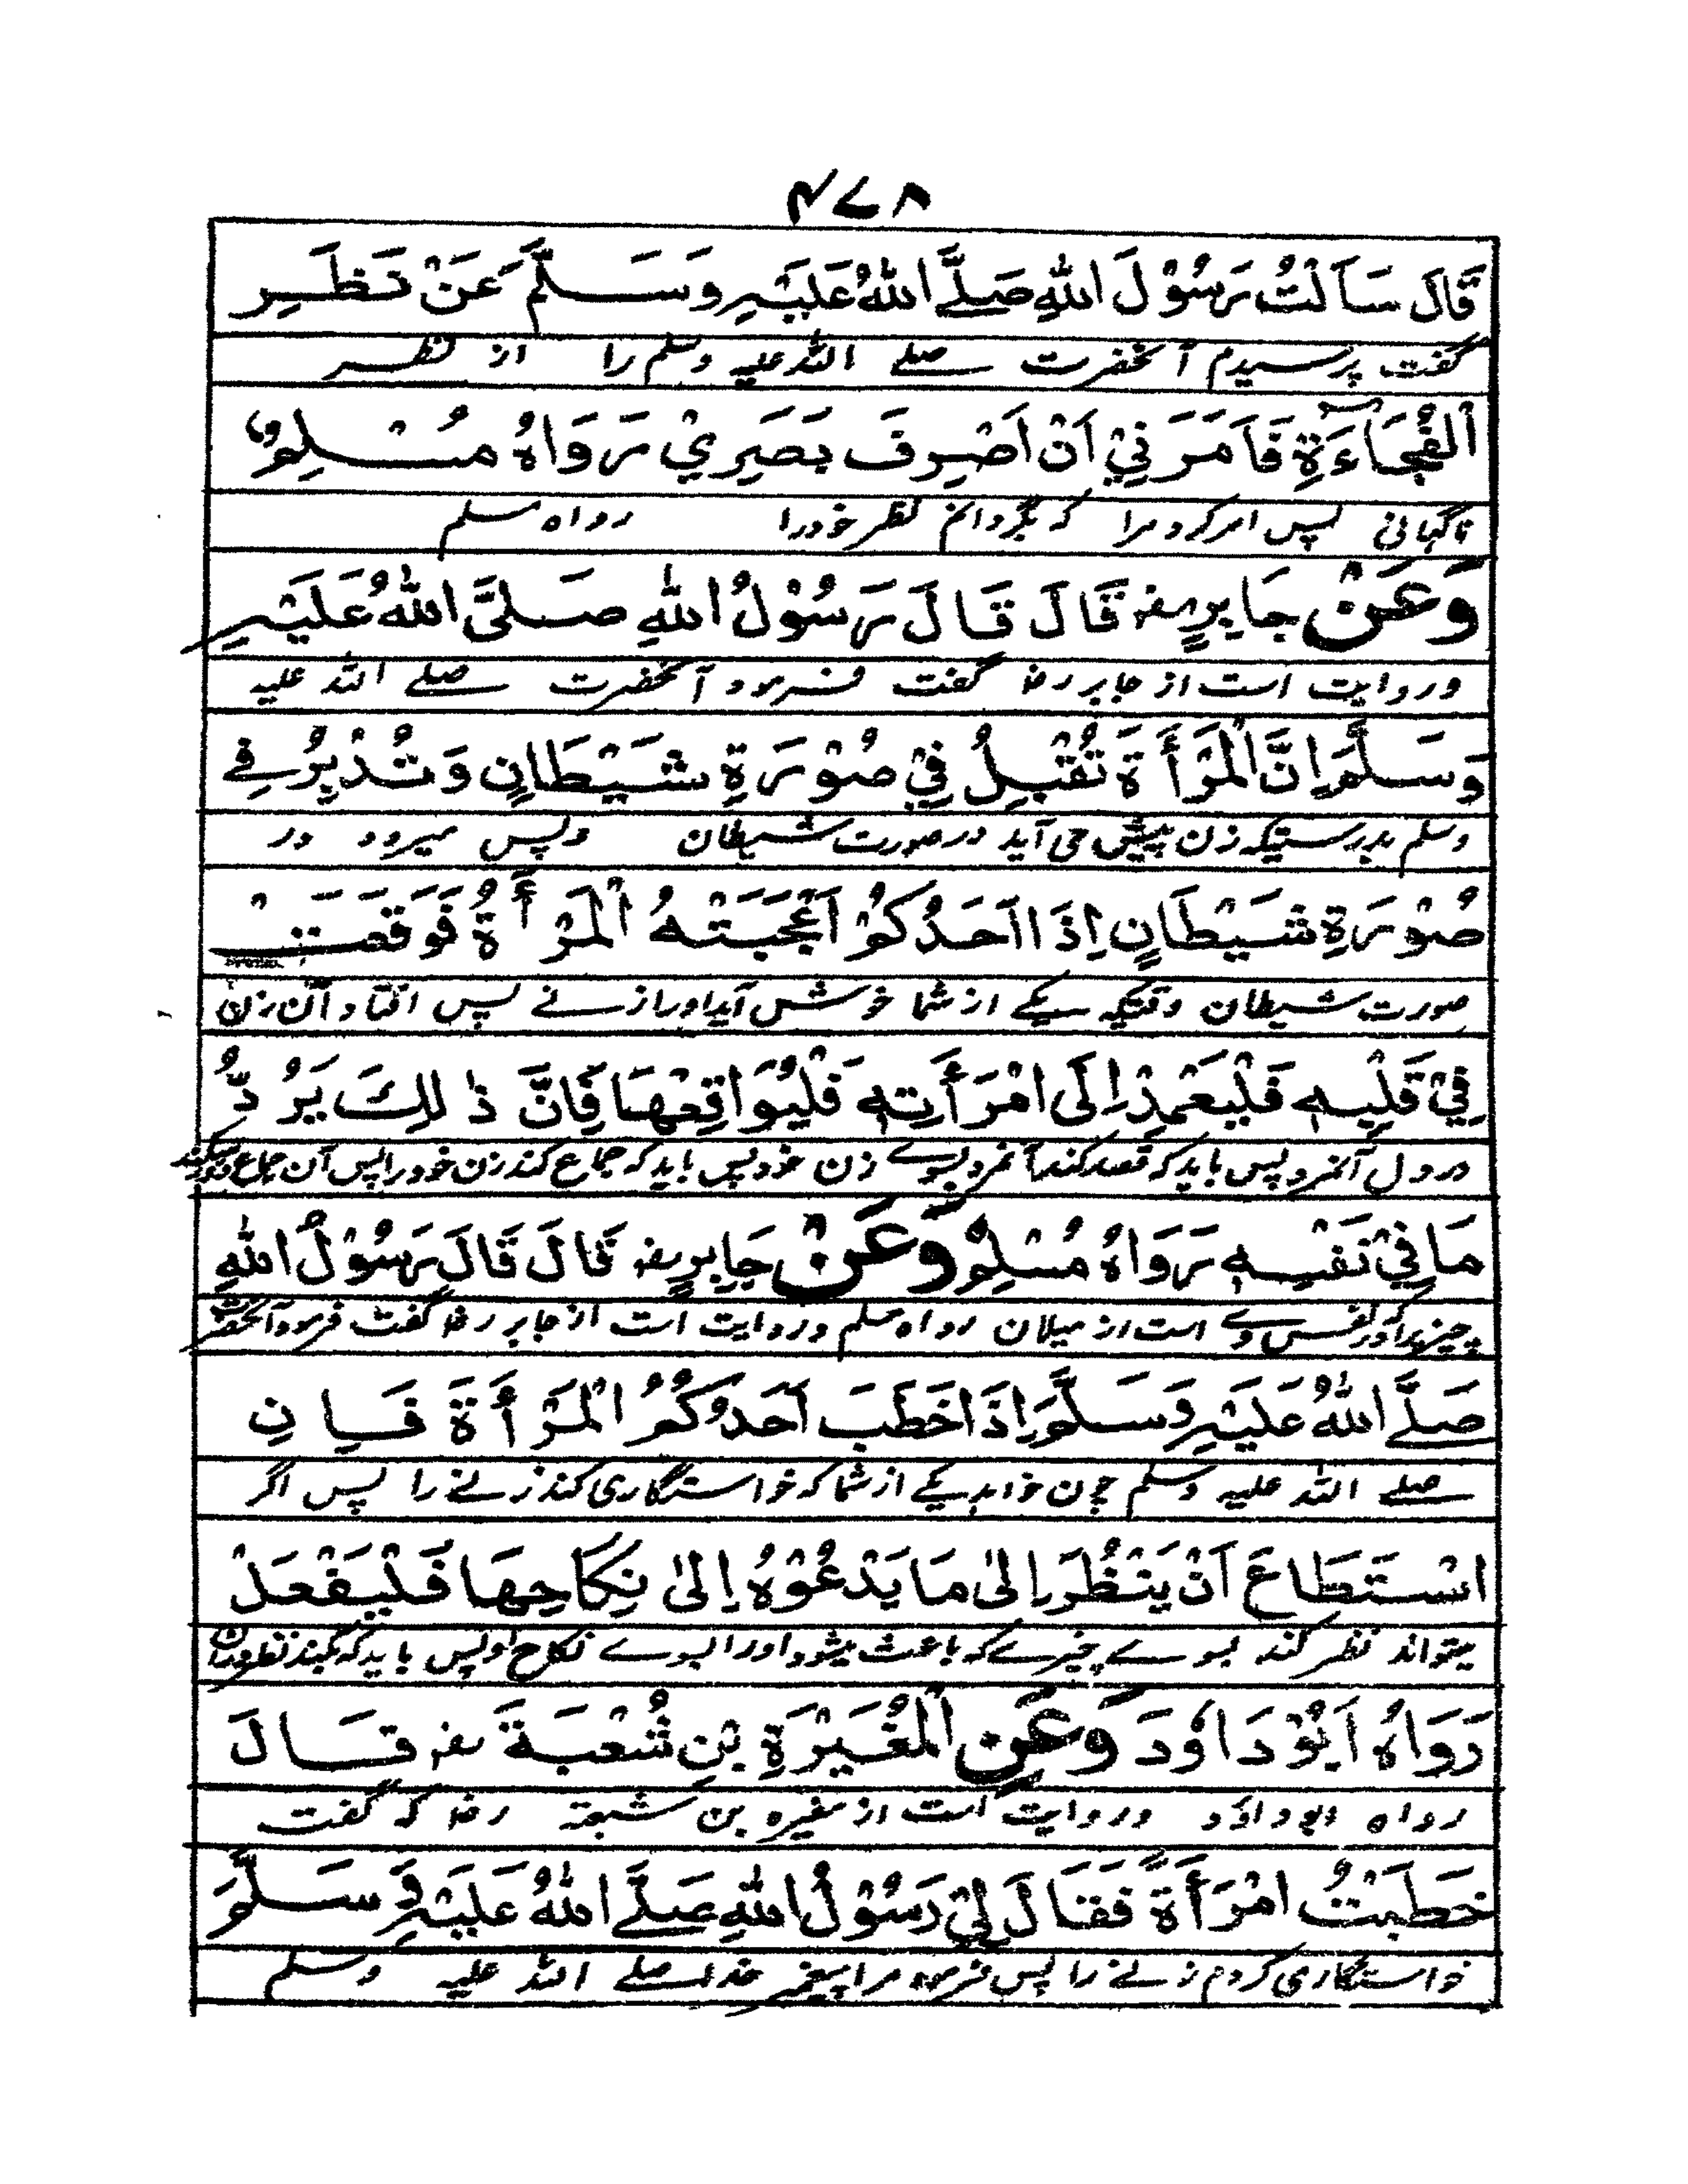 ۴۷۸
قَالَ سَاَلْتُ رَسُوْلَ اللهِ صَلَّے اللهُ عَلَيْهِ وَسَلَّمَ عَنْ نَظَرِ
گفت پرسیدم آنحضرت صلے اللہ علیہ وسلم را از نظر
الْفُجَاءَةِ فَاَمَرَنِيْ اَنْ اَصْرِفَ بَصَرِيْ رَوَاهُ مُسْلِمٌ
ناگہانی پس امر کرد مرا کہ بگردانم نظر خود را رواہ مسلم
وَعَنْ جَابِرٍ رض قَالَ قَالَ رَسُوْلُ اللهِ صَلَّى اللهُ عَلَيْهِ
و روایت است از جابر رض گفت فرمود آنحضرت صلے اللہ علیہ
وَسَلَّمَ اِنَّ الْمَرْأَةَ تُقْبِلُ فِيْ صُوْرَةِ شَيْطَانٍ وَتُدْبِرُ فِے
وسلم بدرستیکہ زن پیش می آید در صورت شیطان و پس میرود در
صُوْرَةِ شَيْطَانٍ اِذَا اَحَدُكُمْ اَعْجَبَتْهُ الْمَرْأَةُ فَوَقَعَتْ
صورت شیطان وقتیکہ یکے از شما خوش آید او را زنے پس افتاد آن زن
فِيْ قَلْبِهٖ فَلْيَعْمِدْ اِلَى امْرَأَتِهٖ فَلْيُوَاقِعْهَا فَاِنَّ ذٰلِكَ يَرُدُّ
در دل آنمرد پس باید کہ قصد کند آنمرد بسوے زن خود پس باید کہ جماع کند زن خود را پس آن جماع
مَا فِيْ نَفْسِهٖ رَوَاهُ مُسْلِمٌ وَعَنْ جَابِرٍ رض قَالَ قَالَ رَسُوْلُ اللهِ
نفس وے است از میلان رواہ مسلم و روایت است از جابر رض گفت فرمود آنحضرت
صَلَّے اللهُ عَلَيْهِ وَسَلَّمَ اِذَا خَطَبَ اَحَدُكُمُ الْمَرْأَةَ فَاِنِ
صلے اللہ علیہ وسلم چون خواہد یکے از شما کہ خواستگاری کند زنے را پس اگر
اسْتَطَاعَ اَنْ يَنْظُرَ اِلٰى مَا يَدْعُوْهُ اِلٰى نِكَاحِهَا فَلْيَفْعَلْ
میتواند نظر کند بسوے چیزے کہ باعث میشود او را بسوے نکاح او پس باید کہ بکند نظر
رَوَاهُ اَبُوْ دَاوُدَ وَعَنِ الْمُغِيْرَةِ بْنِ شُعْبَةَ رض قَالَ
رواہ ابو داؤد و روایت است از مغیرہ بن شعبة رض کہ گفت
خَطَبْتُ امْرَأَةً فَقَالَ لِيْ رَسُوْلُ اللهِ صَلَّے اللهُ عَلَيْهِ وَسَلَّمَ
خواستگاری کردم زنے را پس فرمود مرا پیغمبر خدا صلے اللہ علیہ وسلم